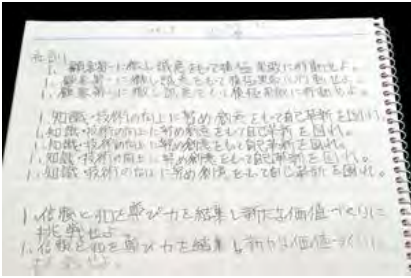 社訓
1. 顧客第一に徹し誠意をもって積極果敢に行動せよ。
1. 顧客第一に徹し誠意をもって積極果敢に行動せよ。
1. 顧客第一に徹し誠意をもって積極果敢に行動せよ。
1. 知識・技術の向上に努め創意をもって自己革新を図れ。
1. 知識・技術の向上に努め創意をもって自己革新を図れ。
1. 知識・技術の向上に努め創意をもって自己革新を図れ。
1. 知識・技術の向上に努め創意をもって自己革新を図れ。
1. 知識・技術の向上に努め創意をもって自己革新を図れ。
1. 信頼と和を尊び力を結集し新たな価値づくりに
挑戦せよ。
1. 信頼と和を尊び力を結集し新たな価値づくりに